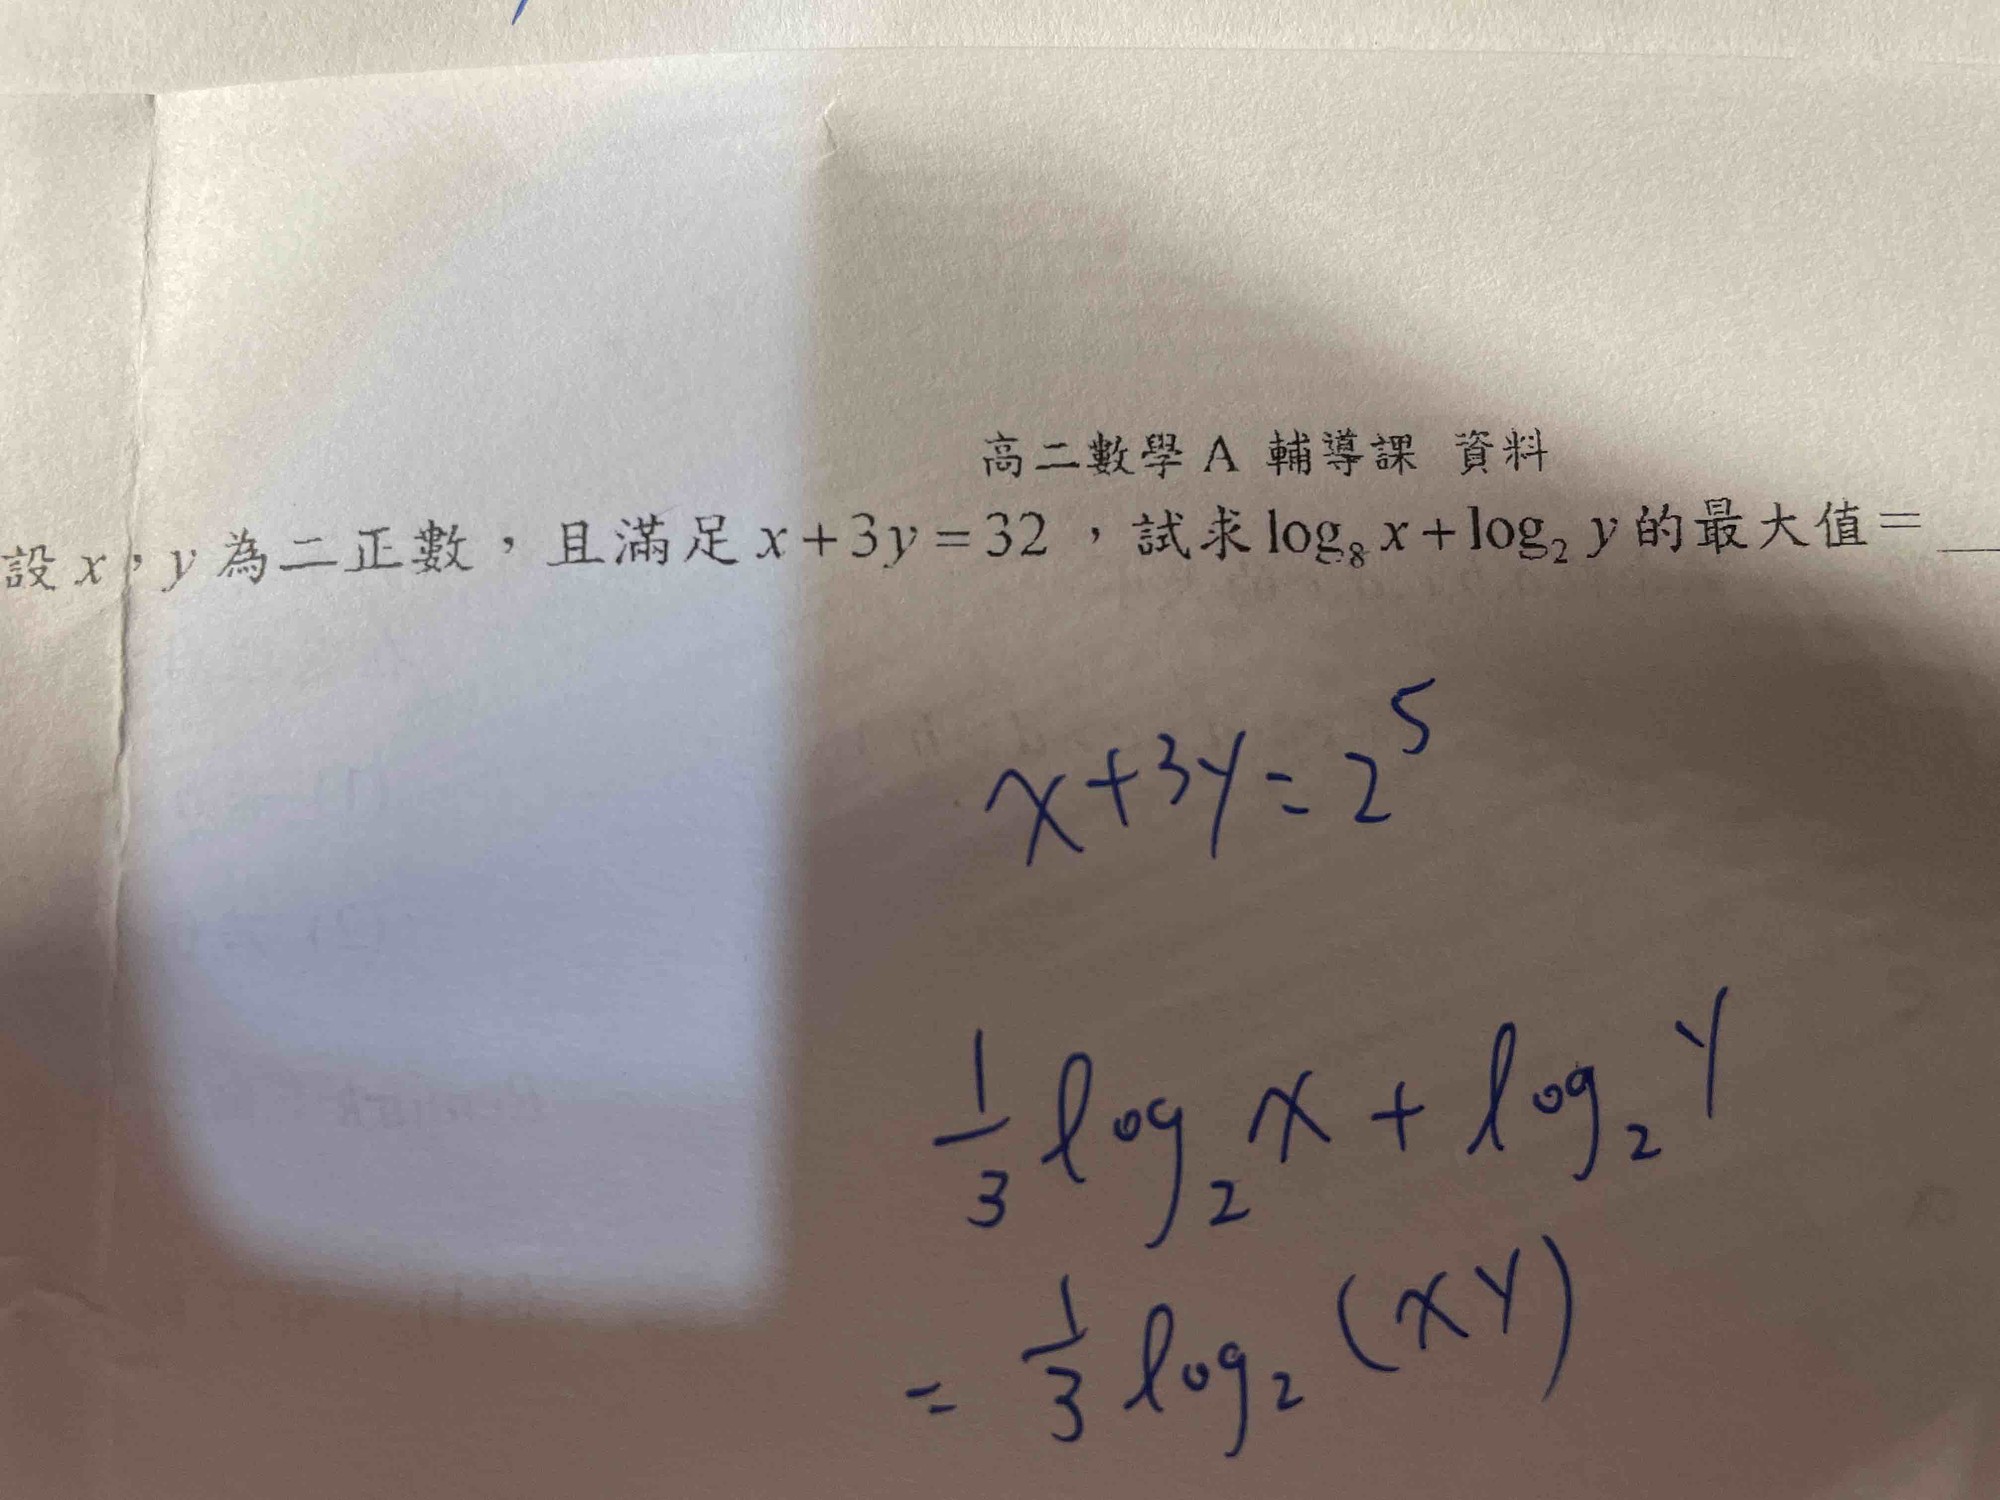 高二數學 A 輔導課 資料
設 x，y 為二正數，且滿足 x+3y=32，試求 log₈ x+log₂ y 的最大值=__
x+3y=2⁵
1/3 log₂ x + log₂ y
= 1/3 log₂ (xy)